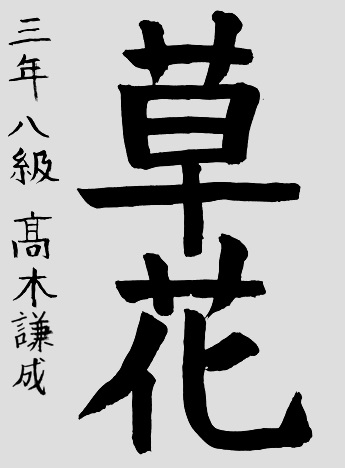 草花
三年八級 髙木謙成